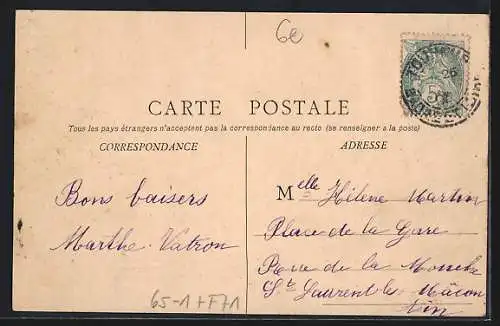 6e
CARTE POSTALE
Tous les pays étrangers n'acceptent pas la correspondance au recto (se renseigner à la poste)
CORRESPONDANCE
ADRESSE
Bons baisers
Marthe Vatron
Melle Hélène Martin
Place de la Gare
de la
St Laurent les Mâcon
Ain
65-1+F71